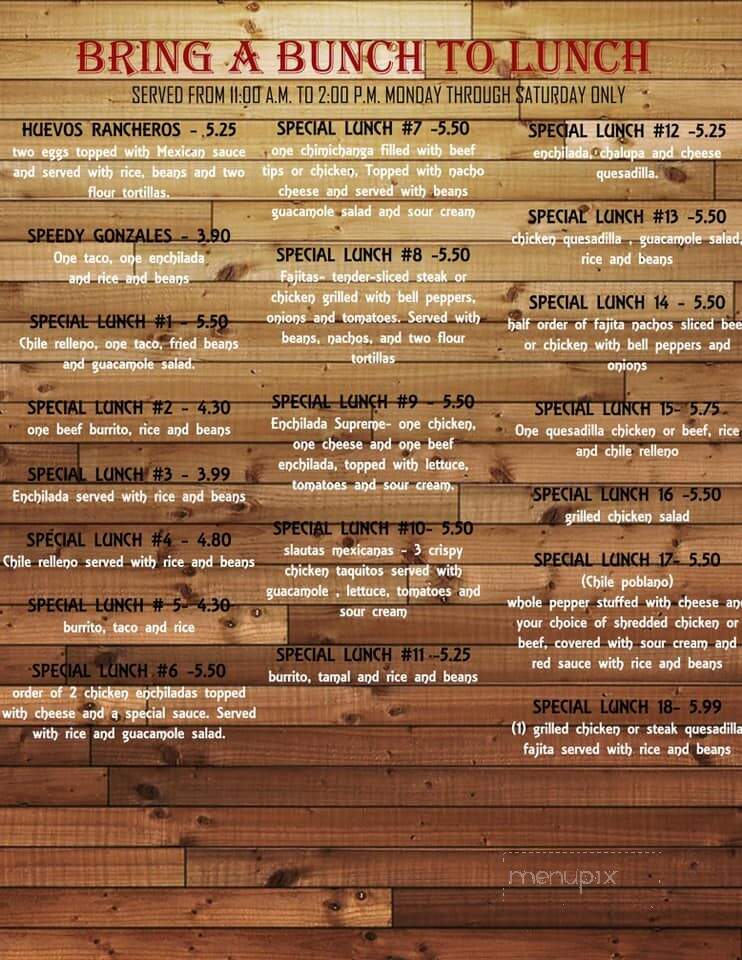 BRING A BUNCH TO LUNCH
SERVED FROM 11:00 A.M. TO 2:00 P.M. MONDAY THROUGH SATURDAY ONLY
HUEVOS RANCHEROS - .5.25
two eggs topped with Mexican sauce
and served with rice, beans and two
flour tortillas.
SPEEDY GONZALES - 3.90
One taco, one enchilada
and rice and beans
SPECIAL LUNCH #1 - 5.50
Chile relleno, one taco, fried beans
and guacamole salad.
SPECIAL LUNCH #2 - 4.30
one beef burrito, rice and beans
SPECIAL LUNCH #3 - 3.99
Enchilada served with rice and beans
SPECIAL LUNCH #4 - 4.80
Chile relleno served with rice and beans
SPECIAL LUNCH # 5- 4.30
burrito, taco and rice
SPECIAL LUNCH #6 -5.50
order of 2 chicken enchiladas topped
with cheese and a special sauce. Served
with rice and guacamole salad.
SPECIAL LUNCH #7 -5.50
one chimichanga filled with beef
tips or chicken, Topped with nacho
cheese and served with beans
guacamole salad and sour cream
SPECIAL LUNCH #8 -5.50
Fajitas- tender-sliced steak or
chicken grilled with bell peppers,
onions and tomatoes. Served with
beans, nachos, and two flour
tortillas
SPECIAL LUNCH #9 - 5.50
Enchilada Supreme- one chicken,
one cheese and one beef
enchilada, topped with lettuce,
tomatoes and sour cream.
SPECIAL LUNCH #10- 5.50
slautas mexicanas - 3 crispy
chicken taquitos served with
guacamole , lettuce, tomatoes and
sour cream
SPECIAL LUNCH #11 --5.25
burrito, tamal and rice and beans
SPECIAL LUNCH #12 -5.25
enchilada, chalupa and cheese
quesadilla.
SPECIAL LUNCH #13 -5.50
chicken quesadilla , guacamole salad,
rice and beans
SPECIAL LUNCH 14 - 5.50
half order of fajita nachos sliced bee
or chicken with bell peppers and
onions
SPECIAL LUNCH 15- 5.75
One quesadilla chicken or beef, rice
and chile relleno
SPECIAL LUNCH 16 -5.50
grilled chicken salad
SPECIAL LUNCH 17- 5.50
(Chile poblano)
whole pepper stuffed with cheese an
your choice of shredded chicken or
beef, covered with sour cream and
red sauce with rice and beans
SPECIAL LUNCH 18- 5.99
(1) grilled chicken or steak quesadilla
fajita served with rice and beans
menupix